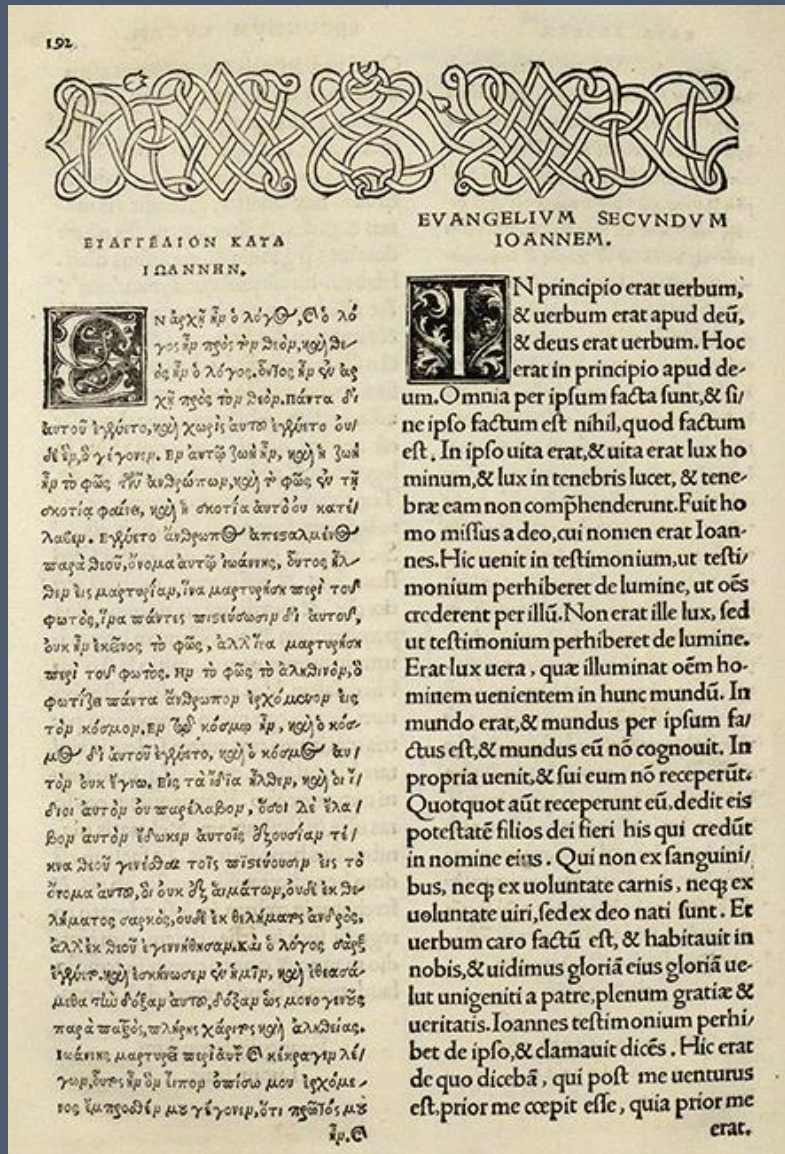 192
ΕΥΑΓΓΕΛΙΟΝ ΚΑΤΑ
ΙΩΑΝΝΗΝ.
ΕΝ ἀρχῇ ἦν ὁ λόγος, καὶ ὁ λό
γος ἦν πρὸς τὸν θεὸν, καὶ θε-
ὸς ἦν ὁ λόγος. οὗτος ἦν ἐν ἀρ
χῇ πρὸς τὸν θεὸν. πάντα δι
αυτοῦ ἐγένετο, καὶ χωρὶς αυτου ἐγένετο ου/
δὲ ἓν, ὃ γέγονεν. Εν αυτῷ ζωὴ ἦν, καὶ ἡ ζωὴ
ἦν τὸ φῶς τῶν ἀνθρώπων, καὶ τὸ φῶς ἐν τῇ
σκοτίᾳ φαίνει, καὶ ἡ σκοτία αυτὸ ου κατέ/
λαβεν. Εγένετο ἄνθρωπος ἀπεσαλμένος
παρὰ θεοῦ, ὄνομα αυτῷ ἰωάννης, ὅυτος ἦλ-
θεν εἰς μαρτυρίαν, ἵνα μαρτυρήσῃ περὶ τοῦ
φωτός, ἵνα πάντες πιστεύσωσιν δι αυτοῦ,
ουκ ἦν ἐκεῖνος τὸ φῶς, ἀλλ ἵνα μαρτυρήσῃ
περὶ τοῦ φωτος. Ην τὸ φῶς τὸ ἀληθινὸν, ὃ
φωτίζει πάντα ἄνθρωπον ἐρχόμενον εἰς
τὸν κόσμον. Εν τῷ κόσμῳ ἦν, καὶ ὁ κόσ-
μος δι αυτοῦ ἐγένετο, καὶ ὁ κόσμος αυ/
τὸν ουκ ἔγνω. Εις τὰ ἴδια ἦλθεν, καὶ ὁι ἴ/
διοι αυτὸν ου παρέλαβον, ὅσοι δὲ ἔλα/
βον αυτὸν ἔδωκεν αυτοῖς ἐξουσίαν τέ/
κνα θεοῦ γενέσθαι τοῖς πιστεύουσιν εἰς τὸ
ὄνομα αυτου, ὁι ουκ ἐξ αἱμάτων, ουδὲ ἐκ θε-
λήματος σαρκὸς, ουδὲ ἐκ θελήματος ἀνδρὸς,
ἀλλ ἐκ θεοῦ ἐγεννήθησαν. Και ὁ λόγος σὰρξ
ἐγένετο. καὶ ἐσκήνωσεν ἐν ἡμῖν, καὶ ἐθεασά-
μεθα τὴν δόξαν αυτου, δόξαν ὡς μονογενοῦς
παρὰ πατρὸς, πλήρης χάριτος καὶ ἀληθείας.
Ιωάννης μαρτυρεῖ περὶ αυτοῦ καὶ κέκραγεν λέ/
γων, οὗτος ἦν ὃν εἶπον ὀπίσω μου ἐρχόμε-
νος ἔμπροσθέν μου γέγονεν, ὅτι πρῶτός μου
ἦν. καὶ
EVANGELIVM SECVNDVM
IOANNEM.
IN principio erat uerbum,
& uerbum erat apud deũ,
& deus erat uerbum. Hoc
erat in principio apud de-
um. Omnia per ipsum facta sunt, & si/
ne ipso factum est nihil, quod factum
est. In ipso uita erat, & uita erat lux ho
minum, & lux in tenebris lucet, & tene-
bræ eam non comp̃henderunt. Fuit ho
mo missus a deo, cui nomen erat Ioan-
nes. Hic uenit in testimonium, ut testi/
monium perhiberet de lumine, ut oẽs
crederent per illũ. Non erat ille lux, sed
ut testimonium perhiberet de lumine.
Erat lux uera, quæ illuminat oẽm ho-
minem uenientem in hunc mundũ. In
mundo erat, & mundus per ipsum fa/
ctus est, & mundus eũ nõ cognouit. In
propria uenit, & sui eum nõ receperũt.
Quotquot aũt receperunt eũ, dedit eis
potestatẽ filios dei fieri his qui credũt
in nomine eius. Qui non ex sanguini/
bus, neq; ex uoluntate carnis, neq; ex
uoluntate uiri, sed ex deo nati sunt. Et
uerbum caro factũ est, & habitauit in
nobis, & uidimus gloriã eius gloriã ue-
lut unigeniti a patre, plenum gratiæ &
ueritatis. Ioannes testimonium perhi/
bet de ipso, & clamauit dicẽs. Hic erat
de quo dicebã, qui post me uenturus
est, prior me cœpit esse, quia prior me
erat.